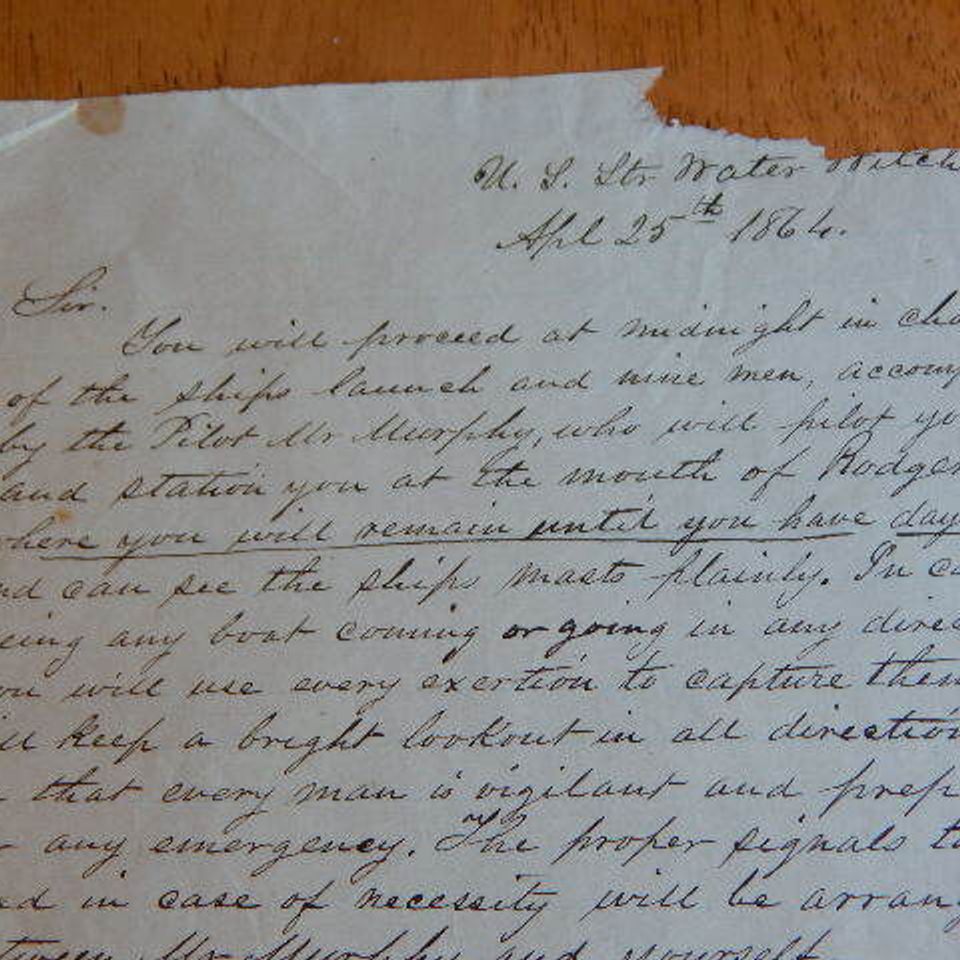 U. S. Str Water Witch
Apl 25th 1864.
Sir.
You will proceed at midnight in cha
of the ships launch and nine men, accomp
by the Pilot Mr Murphy, who will pilot yo
and station you at the mouth of Rodger
here you will remain until you have day
nd can see the ships masts plainly. In ca
eing any boat coming or going in any direc
ou will use every exertion to capture them
ill keep a bright lookout in all direction
that every man is vigilant and prep
r any emergency. The proper signals to
ed in case of necessity will be arrang
tween Mr Murphy and yourself